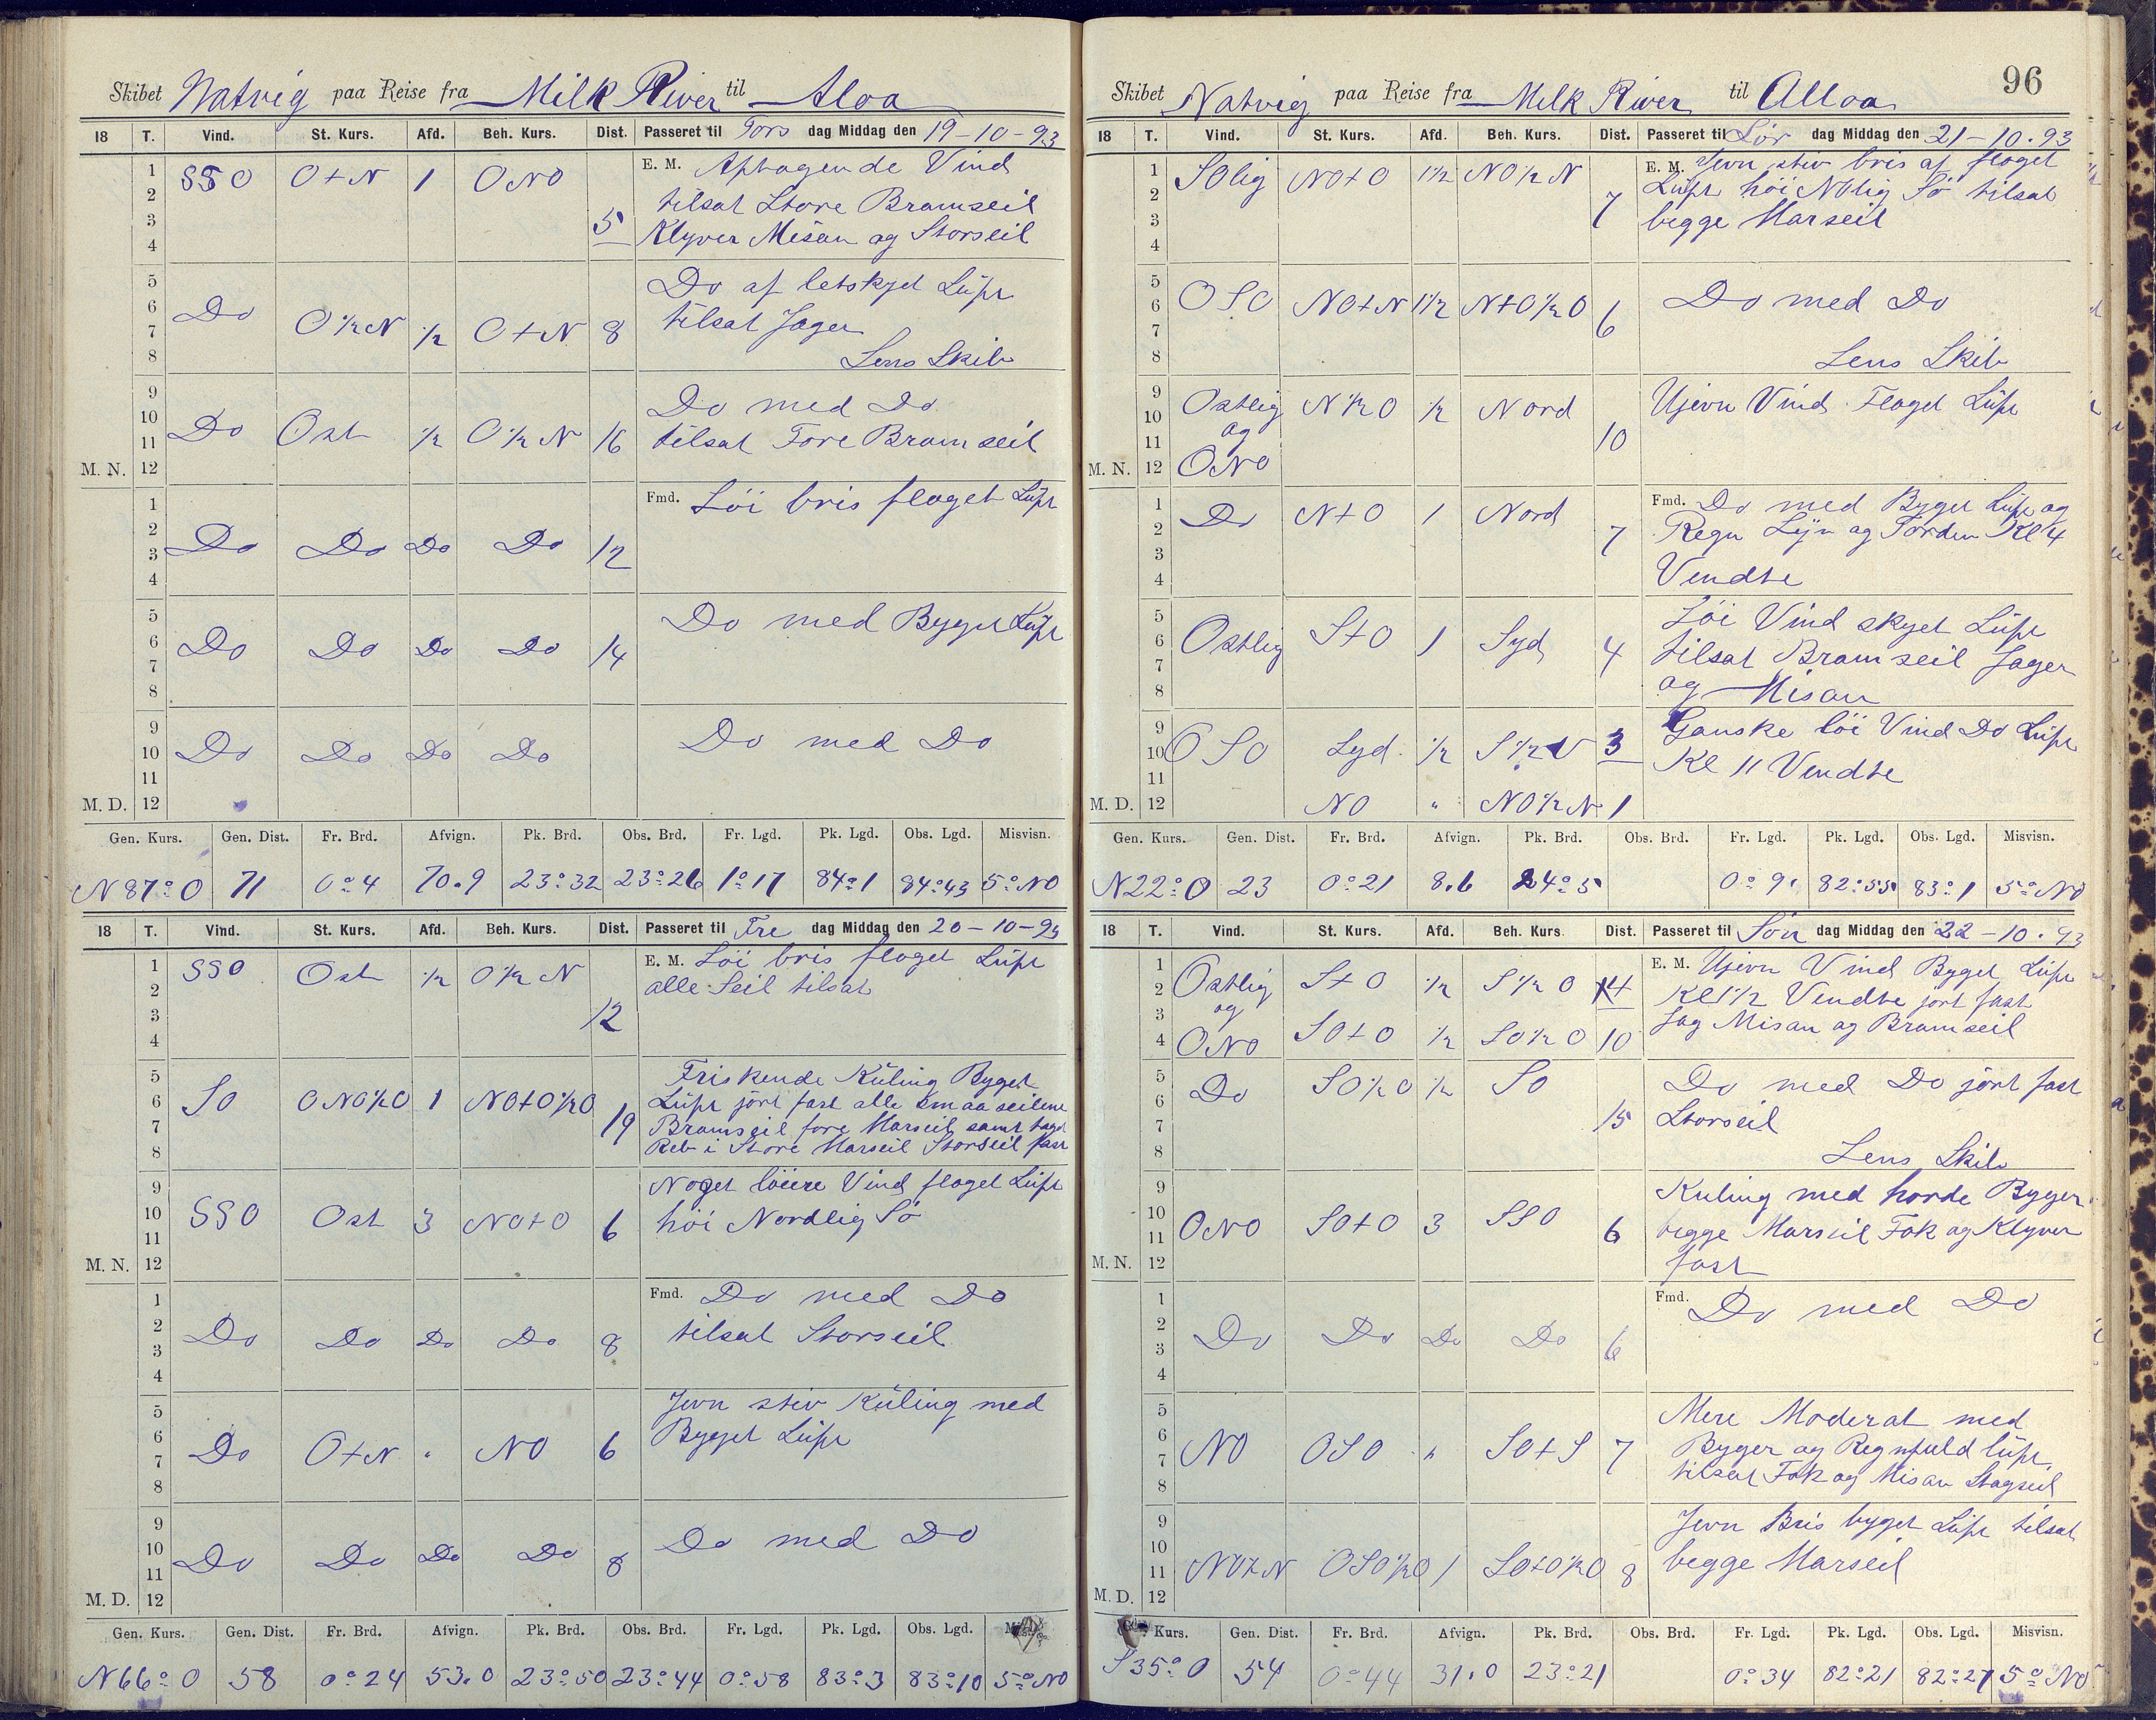 Skibet Natvig paa Reise fra Milk River til Aloa
18 T. Vind. St. Kurs. Afd. Beh. Kurs. Dist. Passeret til Tors dag Middag den 19-10-93
1 2 3 4 SSO O+N 1 ONO 5 E. M. Aptagende Vind
tilsat Store Bramseil
Klyver Misan og Storseil
5 6 7 8 Do O½N ½ O+N 8 Do af letskyet Lüft
tilsat Jager
Lens Skib
9 10 11 M. N. 12 Do Ost ½ O½N 16 Do med Do
tilsat Fore Bramseil
1 2 3 4 Do Do Do Do 12 Fmd. Löi bris flaget Lüft
5 6 7 8 Do Do Do Do 14 Do med Byget Lüft
9 10 11 M. D. 12 Do Do Do Do Do med Do
Gen. Kurs. Gen. Dist. Fr. Brd. Afvign. Pk. Brd. Obs. Brd. Fr. Lgd. Pk. Lgd. Obs. Lgd. Misvisn.
N87°O 71 0°4 70.9 23°32 23°26 1°17 84°1 84°43 5°NO
18 T. Vind. St. Kurs. Afd. Beh. Kurs. Dist. Passeret til Fre dag Middag den 20-10-93
1 2 3 4 SSO Ost ½ O½N 12 E. M. Löi bris flaget Lüft
alle Seil tilsat
5 6 7 8 SO ONO½O 1 NO+O½O 19 Friskende Küling Byget
Lüft jört fast alle smaa seilene
Bramseil fore Marseil samt taget
Reb i Store Marseil Storseil fast
9 10 11 M. N. 12 SSO Ost 3 NO+O 6 Noget löiere Vind flaget Lüft
höi Nordlig Sö
1 2 3 4 Do Do Do Do 8 Fmd. Do med Do
tilsat Storseil
5 6 7 8 Do O+N " NO 6 Jevn stiv Küling med
Byget Lüft
9 10 11 M. D. 12 Do Do Do Do 8 Do med Do
Gen. Kurs. Gen. Dist. Fr. Brd. Afvign. Pk. Brd. Obs. Brd. Fr. Lgd. Pk. Lgd. Obs. Lgd.
N66°O 58 0°24 53.0 23°50 23°44 0°58 83°3 83°10 5°NO
96
Skibet Natvig paa Reise fra Milk River til Alloa
18 T. Vind. St. Kurs. Afd. Beh. Kurs. Dist. Passeret til Lör dag Middag den 21-10.93
1 2 3 4 SOlig NO+O 1½ NO½N 7 E. M. Jevn stiv bris af flaget
Lüft höi NOlig Sö tilsat
begge Marseil
5 6 7 8 OSO NO+N 1½ N+O½O 6 Do med Do
Lens Skib
9 10 11 M. N. 12 Ostlig og ONO N½O ½ Nord 10 Ujevn Vind Flaget Lüft
1 2 3 4 Do N+O 1 Nord 7 Fmd. Do med Byget Lüft og
Regn Lyn og Torden Kl 4
Vendte
5 6 7 8 Ostlig S+O 1 Syd 4 Löi Vind skyet Lüft
tilsat Bramseil Jager
og Misan
9 10 11 OSO Syd ½ S½V 3 Ganske löi Vind Do Lüft
Kl 11 Vendte
M. D. 12 NO " NO½N 1
Gen. Kurs. Gen. Dist. Fr. Brd. Afvign. Pk. Brd. Obs. Brd. Fr. Lgd. Pk. Lgd. Obs. Lgd. Misvisn.
N22°O 23 0°21 8.6 24°5 0°9 82°55 83°1 5°NO
18 T. Vind. St. Kurs. Afd. Beh. Kurs. Dist. Passeret til Sön dag Middag den 22-10.93
1 2 3 4 Ostlig og ONO S+O ½ S½O 14 E. M. Ujevn Vind Byget Lüft
Kl 1½ Vendte jört fast
SO+O ½ SO½O 10 Jag Misan og Bramseil
5 6 7 8 Do SO½O ½ SO 15 Do med Do jört fast
Storseil
Lens Skib
9 10 11 M. N. 12 ONO SO+O 3 SSO 6 Kuling med harde Byger
begge Marseil Fok og Klyver
fast
1 2 3 4 Do Do Do Do 6 Fmd. Do med Do
5 6 7 8 NO OSO " SO+S 7 Mere Moderat med
Byger og Regnfuld lüft
tilsat Fok og Misan Stagseil
9 10 11 M. D. 12 NO+N OSO½O 1 SO+O½O 8 Jevn Bris byget Lüft tilsat
begge Marseil
Kurs. Gen. Dist. Fr. Brd. Afvign. Pk. Brd. Obs. Brd. Fr. Lgd. Pk. Lgd. Obs. Lgd. Misvisn.
S35°O 54 0°44 31.0 23°21 0°34 82°21 82°27 5°NO